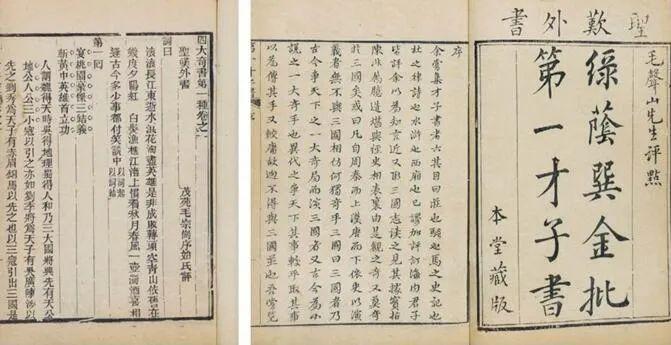 聖歎外書
毛聲山先生評點
綠蔭巽金批
第一才子書
本堂藏版
序
余嘗集才子書者六其目曰莊也騷也馬之史記也
杜之律詩也水滸也西廂也已謬加評訂海內君子
皆許余以為知言近又取三國志讀之見其據實指
陳非屬臆造堪與經史相表裏由是觀之奇又莫奇
於三國矣或曰凡自周秦而上漢唐而下依史以演
義者無不與三國相仿何獨奇乎三國曰三國者乃
古今爭天下之一大奇局而演三國者又古今為小
說之一大奇手也異代之爭天下其事較平取其事
以為傳其手又較庸故迥不得與三國並也吾嘗覽
四大奇書第一種卷之一
聖歎外書
茂苑毛宗崗序始氏評
詞曰
滾滾長江東逝水浪花淘盡英雄是非成敗轉頭空青山依舊在
幾度夕陽紅 白髮漁樵江渚上慣看秋月春風一壺濁酒喜相
逢古今多少事都付笑談中 以詞起以詞結
第一回
宴桃園豪傑三結義
斬黃巾英雄首立功
人謂魏得天時吳得地理蜀得人和乃三大國將興先有天公
地公人公三小寇以引之亦如劉季將為天子有吳廣陳涉以
先之劉秀為天子有赤眉銅馬以先之也以三寇引出三國是